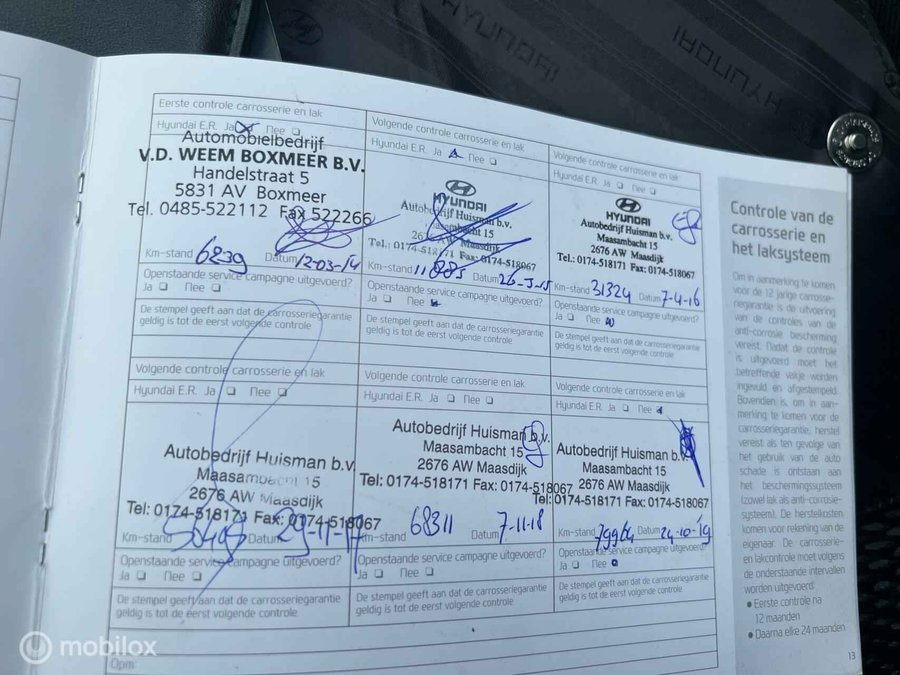 HYUNDAI
HYUNDAI
HYUNDAI
Eerste controle carrosserie en lak
Hyundai E.R. Ja Nee
Automobielbedrijf
V.D. WEEM BOXMEER B.V.
Handelstraat 5
5831 AV Boxmeer
Tel. 0485-522112 Fax 522266
Km-stand 6839 Datum 12-03-14
Openstaande service campagne uitgevoerd?
Ja Nee
De stempel geeft aan dat de carrosseriegarantie
geldig is tot de eerst volgende controle
Volgende controle carrosserie en lak
Hyundai E.R. Ja Nee
HYUNDAI
Autobedrijf Huisman b.v.
Maasambacht 15
2676 AW Maasdijk
Tel.: 0174-518171 Fax: 0174-518067
Km-stand Datum
Openstaande service campagne uitgevoerd?
Ja Nee
De stempel geeft aan dat de carrosseriegarantie
geldig is tot de eerst volgende controle
Volgende controle carrosserie en lak
Hyundai E.R. Ja Nee
HYUNDAI
Autobedrijf Huisman b.v.
Maasambacht 15
2676 AW Maasdijk
Tel.: 0174-518171 Fax: 0174-518067
Km-stand 31324 Datum 7-4-16
Openstaande service campagne uitgevoerd?
Ja Nee
De stempel geeft aan dat de carrosseriegarantie
geldig is tot de eerst volgende controle
Volgende controle carrosserie en lak
Hyundai E.R. Ja Nee
Autobedrijf Huisman b.v.
Maasambacht 15
2676 AW Maasdijk
Tel: 0174-518171 Fax: 0174-518067
Km-stand Datum 29-11-17
Openstaande service campagne uitgevoerd?
Ja Nee
De stempel geeft aan dat de carrosseriegarantie
geldig is tot de eerst volgende controle
Volgende controle carrosserie en lak
Hyundai E.R. Ja Nee
Autobedrijf Huisman b.v.
Maasambacht 15
2676 AW Maasdijk
Tel: 0174-518171 Fax: 0174-518067
Km-stand 68311 Datum 7-11-18
Openstaande service campagne uitgevoerd?
Ja Nee
De stempel geeft aan dat de carrosseriegarantie
geldig is tot de eerst volgende controle
Volgende controle carrosserie en lak
Hyundai E.R. Ja Nee
Autobedrijf Huisman b.v.
Maasambacht 15
2676 AW Maasdijk
Tel: 0174-518171 Fax: 0174-518067
Km-stand 79964 Datum 24-10-19
Openstaande service campagne uitgevoerd?
Ja Nee
De stempel geeft aan dat de carrosseriegarantie
geldig is tot de eerst volgende controle
Opm:
Controle van de
carrosserie en
het laksysteem
Om in aanmerking te komen
voor de 12 jarige carrosse-
riegarantie is de uitvoering
van de controles van de
anti-corrosie bescherming
vereist. Nadat de controle
is uitgevoerd moet het
betreffende vakje worden
ingevuld en afgestempeld.
Bovendien is, om in aan-
merking te komen voor de
carrosseriegarantie, herstel
vereist als ten gevolge van
het gebruik van de auto
schade is ontstaan aan
het beschermingssysteem
(zowel lak als anti-corrosie-
systeem). De herstelkosten
komen voor rekening van de
eigenaar. De carrosserie-
en lakcontrole moet volgens
de onderstaande intervallen
worden uitgevoerd:
• Eerste controle na
12 maanden
• Daarna elke 24 maanden
13
mobilox